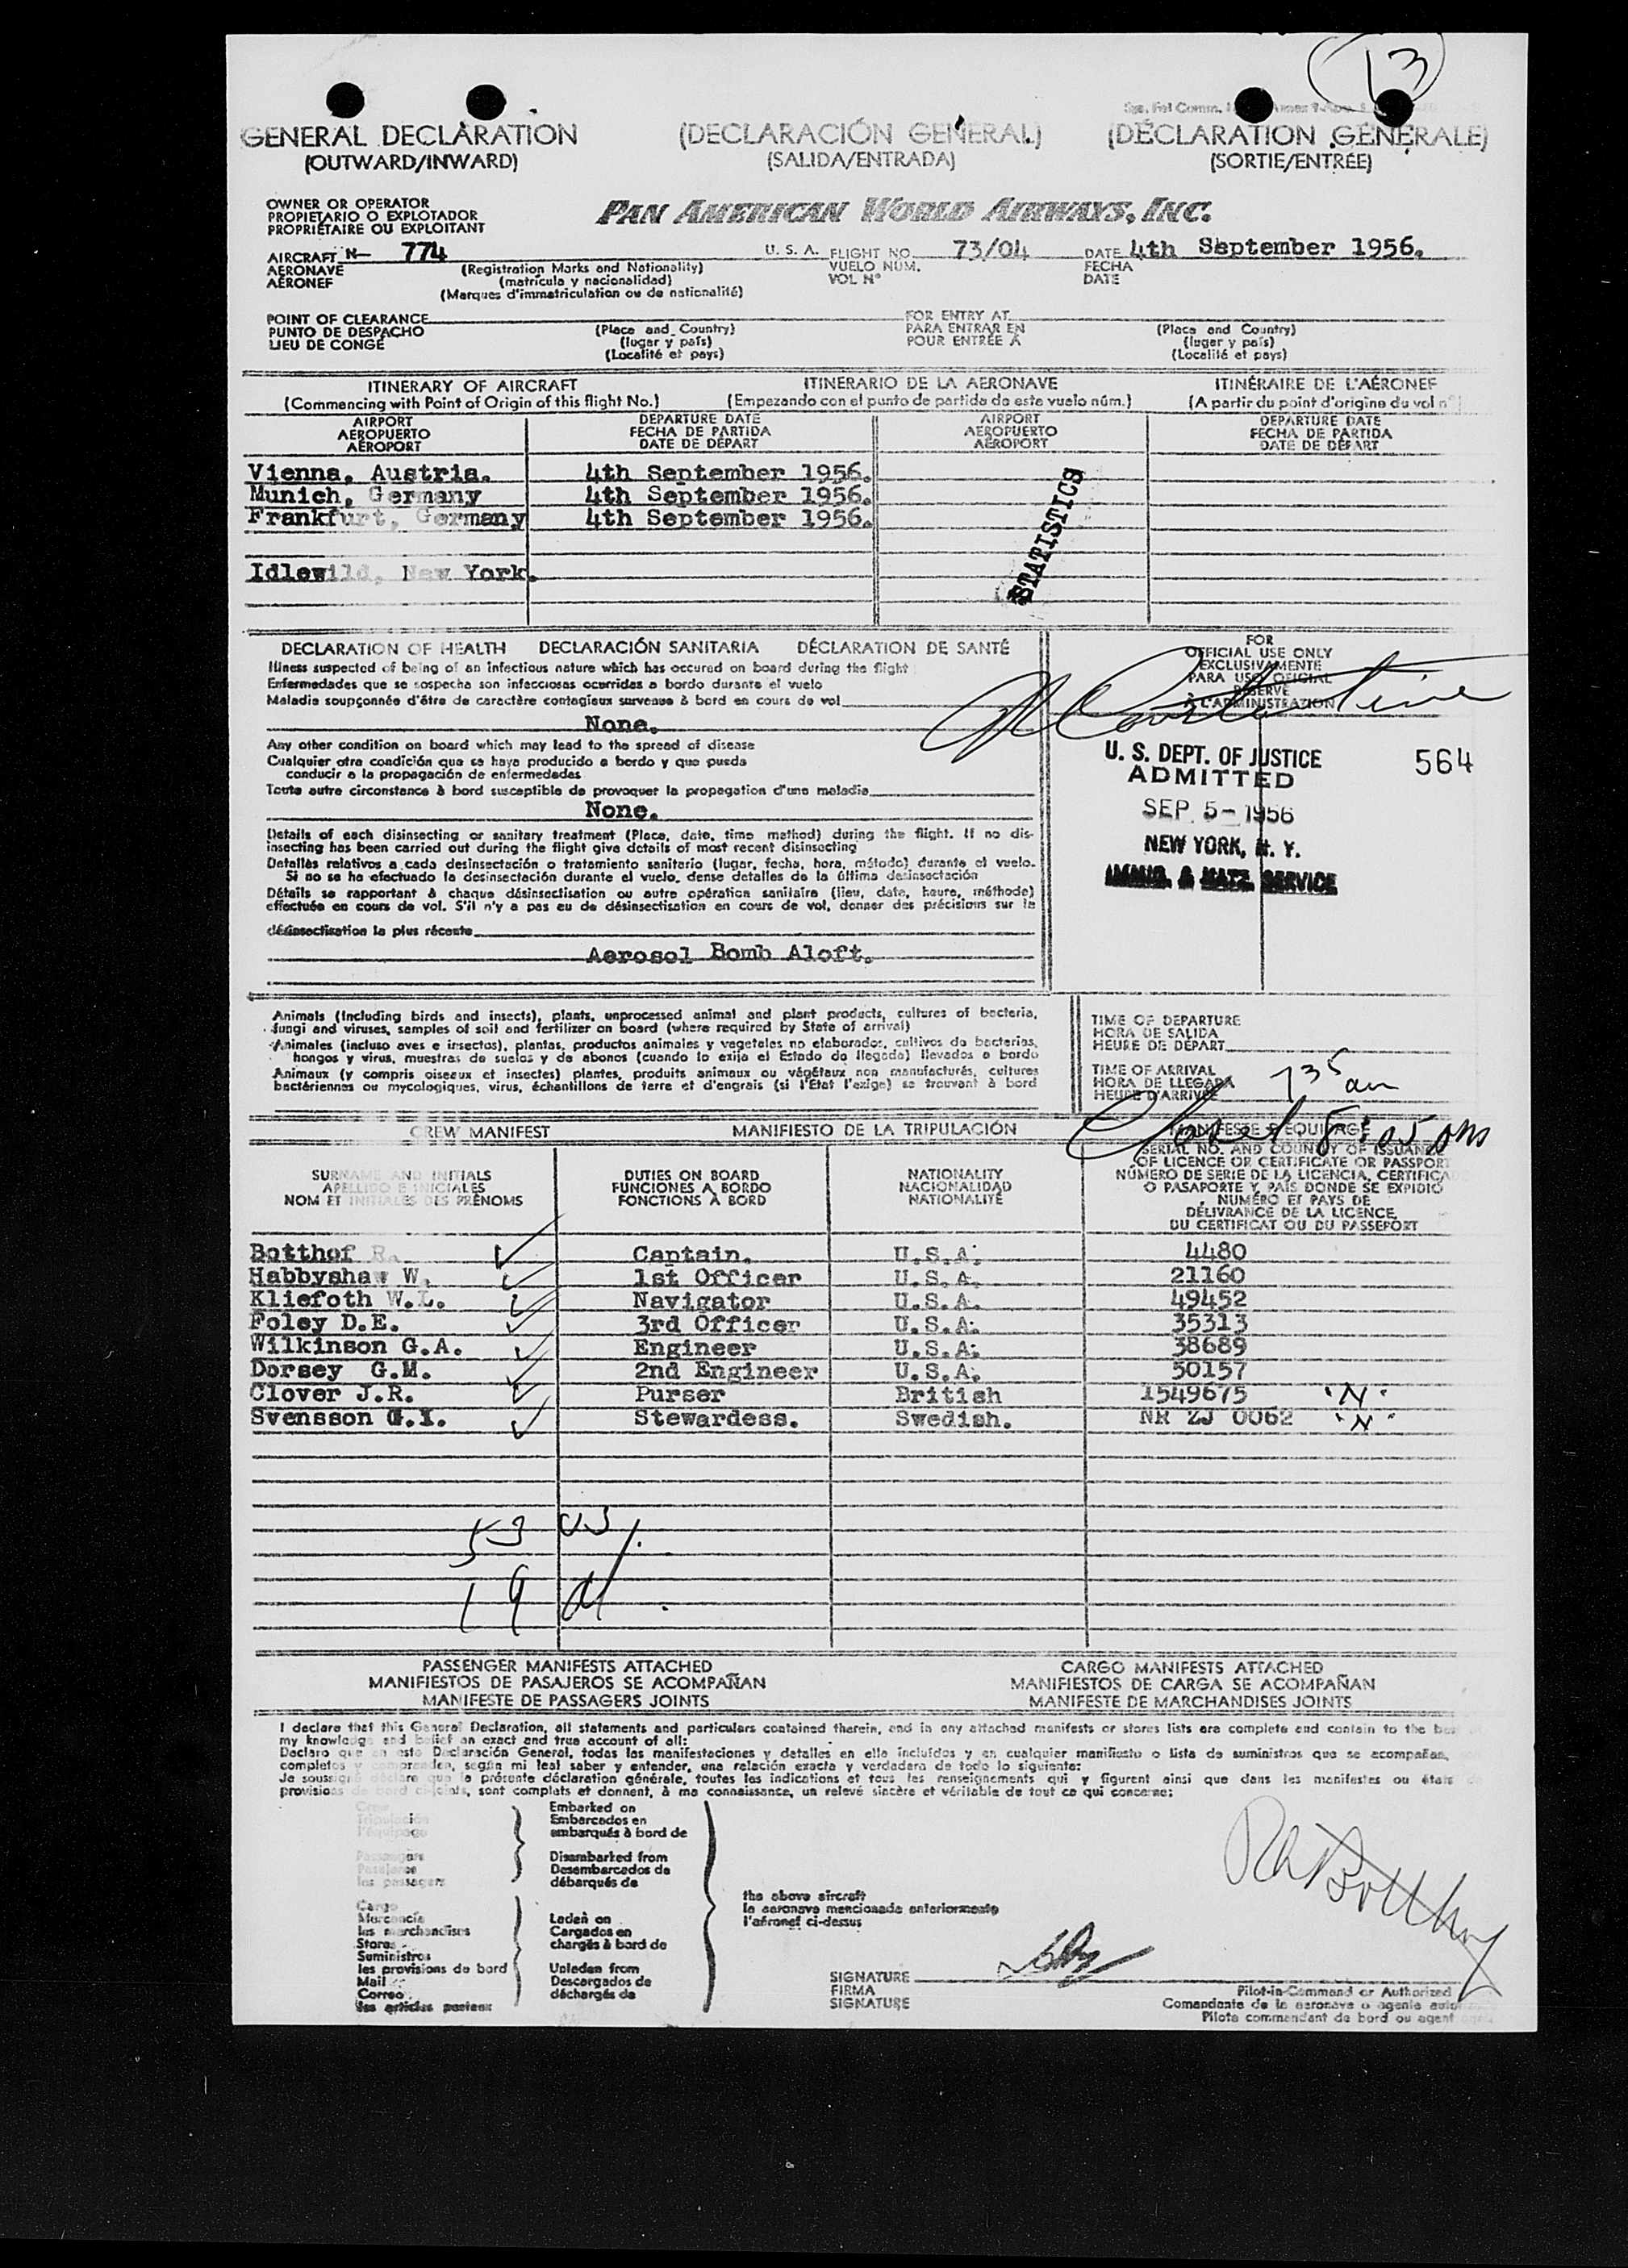 13
GENERAL DECLARATION (DECLARACIÓN GENERAL) (DÉCLARATION GÉNÉRALE)
(OUTWARD/INWARD) (SALIDA/ENTRADA) (SORTIE/ENTRÉE)
OWNER OR OPERATOR
PROPIETARIO O EXPLOTADOR
PROPRIÉTAIRE OU EXPLOITANT
PAN AMERICAN WORLD AIRWAYS, INC.
AIRCRAFT N- 774 U. S. A. FLIGHT NO. 73/04 DATE 4th September 1956.
AERONAVE (Registration Marks and Nationality) VUELO NÚM. FECHA
AÉRONEF (matrícula y nacionalidad) VOL N° DATE
(Marques d'immatriculation ou de nationalité)
POINT OF CLEARANCE FOR ENTRY AT
PUNTO DE DESPACHO (Place and Country) PARA ENTRAR EN (Place and Country)
LIEU DE CONGÉ (lugar y país) POUR ENTRÉE À (lugar y país)
(Localité et pays) (Localité et pays)
ITINERARY OF AIRCRAFT ITINERARIO DE LA AERONAVE ITINÉRAIRE DE L'AÉRONEF
(Commencing with Point of Origin of this flight No.) (Empezando con el punto de partida de este vuelo núm.) (A partir du point d'origine du vol n°)
AIRPORT DEPARTURE DATE AIRPORT DEPARTURE DATE
AEROPUERTO FECHA DE PARTIDA AEROPUERTO FECHA DE PARTIDA
AÉROPORT DATE DE DÉPART AÉROPORT DATE DE DÉPART
Vienna, Austria. 4th September 1956.
Munich, Germany 4th September 1956.
Frankfurt, Germany 4th September 1956.
STATISTICS
Idlewild, New York.
DECLARATION OF HEALTH DECLARACIÓN SANITARIA DÉCLARATION DE SANTÉ
Illness suspected of being of an infectious nature which has occured on board during the flight
Enfermedades que se sospecha son infecciosas ocurridas a bordo durante el vuelo
Maladie soupçonnée d'être de caractère contagieux survenue à bord en cours de vol
None.
Any other condition on board which may lead to the spread of disease
Cualquier otra condición que se haya producido a bordo y que pueda
conducir a la propagación de enfermedades
Toute autre circonstance à bord susceptible de provoquer la propagation d'une maladie
None.
Details of each disinsecting or sanitary treatment (Place, date, time method) during the flight. If no dis-
insecting has been carried out during the flight give details of most recent disinsecting
Detalles relativos a cada desinsectación o tratamiento sanitario (lugar, fecha, hora, método) durante el vuelo.
Si no se ha efectuado la desinsectación durante el vuelo, dense detalles de la última desinsectación
Détails se rapportant à chaque désinsectisation ou autre opération sanitaire (lieu, date, heure, méthode)
effectuée en cours de vol. S'il n'y a pas eu de désinsectisation en cours de vol, donner des précisions sur la
désinsectisation la plus récente
Aerosol Bomb Aloft.
FOR
OFFICIAL USE ONLY
EXCLUSIVAMENTE
PARA USO OFICIAL
RÉSERVÉ
À L'ADMINISTRATION
U. S. DEPT. OF JUSTICE
ADMITTED
SEP 5- 1956
NEW YORK, N. Y.
IMMIG. & NATZ. SERVICE
564
Animals (Including birds and insects), plants, unprocessed animal and plant products, cultures of bacteria,
fungi and viruses, samples of soil and fertilizer on board (where required by State of arrival)
Animales (incluso aves e insectos), plantas, productos animales y vegetales no elaborados, cultivos de bacterias,
hongos y virus, muestras de suelos y de abonos (cuando lo exija el Estado de llegada) llevados a bordo
Animaux (y compris oiseaux et insectes) plantes, produits animaux ou végétaux non manufacturés, cultures
bactériennes ou mycologiques, virus, échantillons de terre et d'engrais (si l'Etat l'exige) se trouvant à bord
TIME OF DEPARTURE
HORA DE SALIDA
HEURE DE DÉPART
TIME OF ARRIVAL
HORA DE LLEGADA 7 35 am
HEURE D'ARRIVÉE
8:05 am
CREW MANIFEST MANIFIESTO DE LA TRIPULACIÓN MANIFESTE D'ÉQUIPAGE
SURNAME AND INITIALS
APELLIDO E INICIALES
NOM ET INITIALES DES PRÉNOMS
DUTIES ON BOARD
FUNCIONES A BORDO
FONCTIONS À BORD
NATIONALITY
NACIONALIDAD
NATIONALITÉ
SERIAL NO. AND COUNTY OF ISSUANCE
OF LICENCE OR CERTIFICATE OR PASSPORT
NÚMERO DE SERIE DE LA LICENCIA, CERTIFICADO
O PASAPORTE Y PAÍS DONDE SE EXPIDIÓ
NUMÉRO ET PAYS DE
DÉLIVRANCE DE LA LICENCE,
DU CERTIFICAT OU DU PASSEPORT
Botthof R. Captain. U.S.A. 4480
Habbyshaw W. 1st Officer U.S.A. 21160
Kliefoth W.L. Navigator U.S.A. 49452
Foley D.E. 3rd Officer U.S.A. 35313
Wilkinson G.A. Engineer U.S.A. 38689
Dorsey G.M. 2nd Engineer U.S.A. 50157
Clover J.R. Purser British 1549675 "N"
Svensson G.I. Stewardess. Swedish. NR ZJ 0062 "N"
53 US
19 al
PASSENGER MANIFESTS ATTACHED CARGO MANIFESTS ATTACHED
MANIFIESTOS DE PASAJEROS SE ACOMPAÑAN MANIFIESTOS DE CARGA SE ACOMPAÑAN
MANIFESTE DE PASSAGERS JOINTS MANIFESTE DE MARCHANDISES JOINTS
I declare that this General Declaration, all statements and particulars contained therein, and in any attached manifests or stores lists are complete and contain to the best
my knowledge and belief an exact and true account of all:
Declaro que en esta Declaración General, todas las manifestaciones y detalles en ella incluídos y en cualquier manifiesto o lista de suministros que se acompañan,
completos y comprenden, según mi leal saber y entender, una relación exacta y verdadera de todo lo siguiente:
Je soussigné déclare que la présente déclaration générale, toutes les indications et tous les renseignements qui y figurent ainsi que dans les manifestes ou états
provisions de bord ci-joints, sont complets et donnent, à ma connaissance, un relevé sincère et véritable de tout ce qui concerne:
Crew
Tripulación
l'équipage
Passengers
Pasajeros
les passagers
Embarked on
Embarcados en
embarqués à bord de
Disembarked from
Desembarcados de
débarqués de
Cargo
Mercancía
les marchandises
Stores
Suministros
les provisions de bord
Mail
Correo
les articles postaux
Laden on
Cargados en
chargés à bord de
Unladen from
Descargados de
déchargés de
the above aircraft
la aeronave mencionada anteriormente
l'aéronef ci-dessus
SIGNATURE
FIRMA
SIGNATURE
Pilot-in-Command or Authorized
Comandante de la aeronave o agente
Pilote commandant de bord ou agent